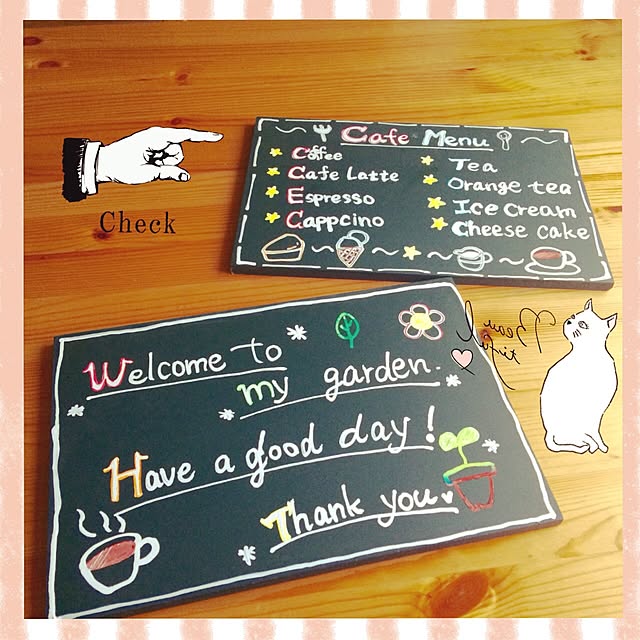 Check
Cafe Menu
Coffee
Cafe Latte
Espresso
Cappcino
Tea
Orange tea
Ice Cream
Cheese cake
Welcome to
my garden.
Have a good day!
Thank you